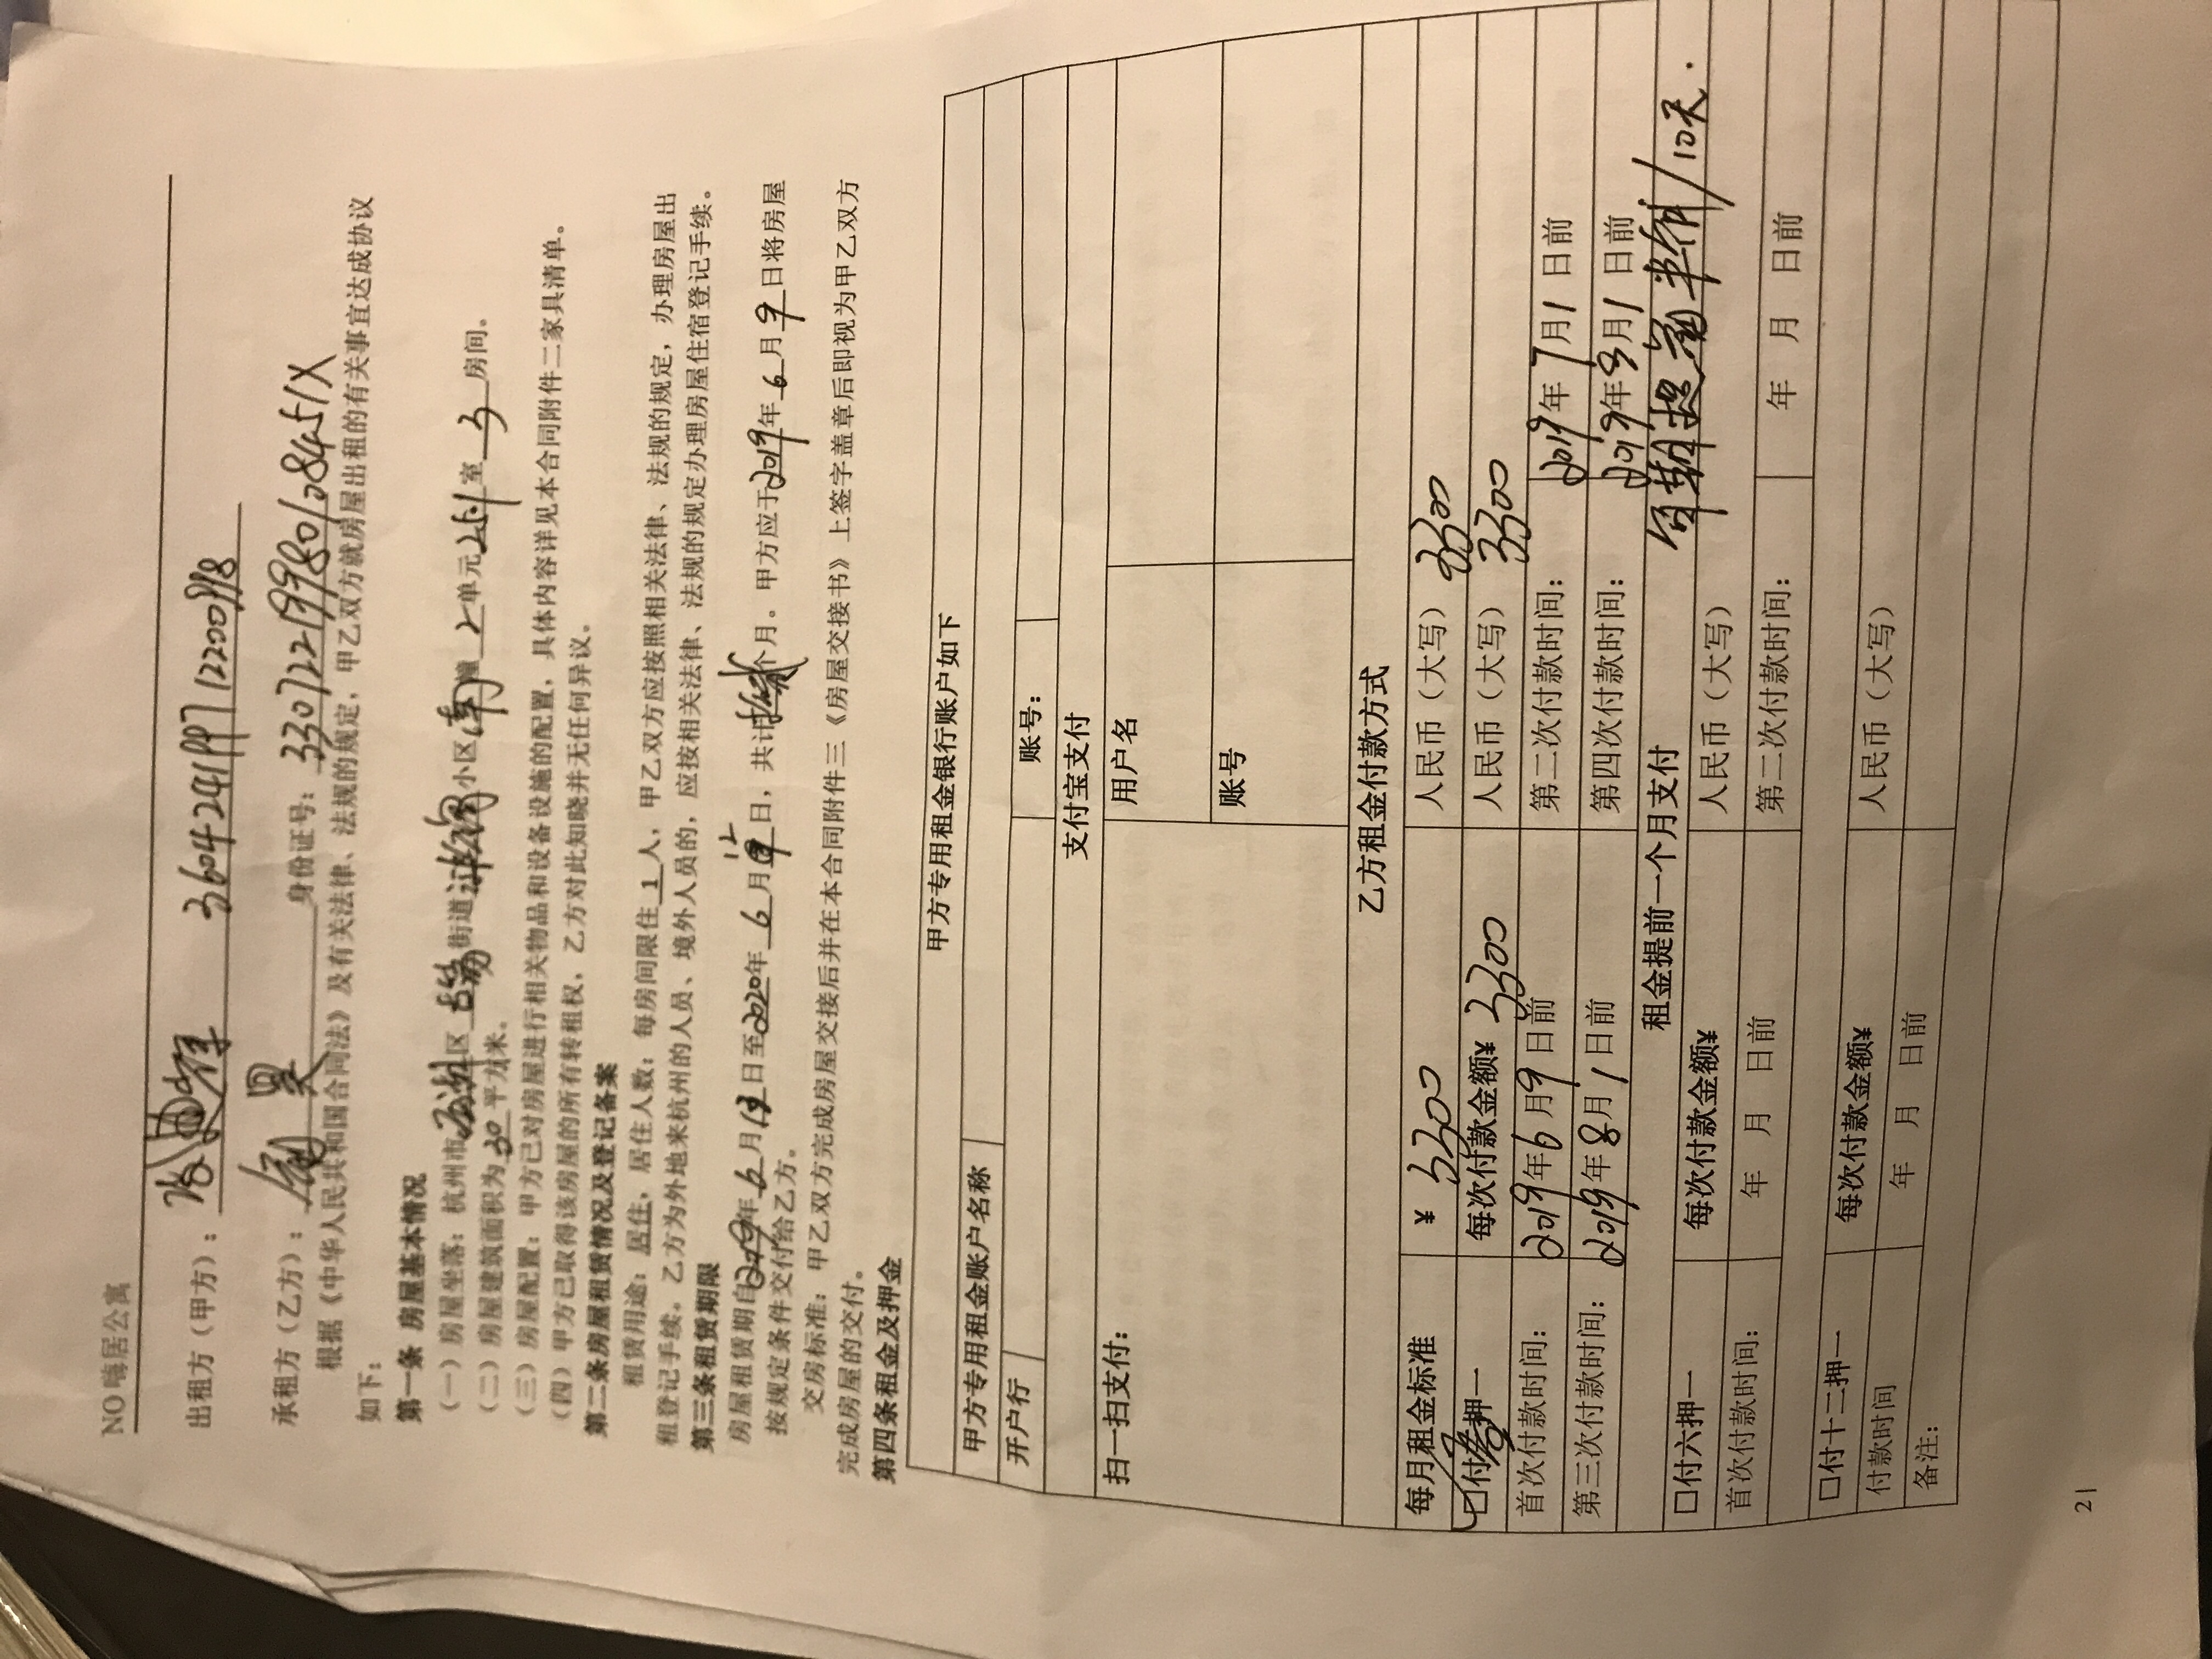 NO 嗨居公寓
出租方（甲方）： 360424199712200998
承租方（乙方）： 昊 身份证号： 33072219980108451X
根据《中华人民共和国合同法》及有关法律、法规的规定，甲乙双方就房屋出租的有关事宜达成协议
如下：
第一条 房屋基本情况
（一）房屋坐落：杭州市西湖区古荡街道 小区南幢2单元251室3房间。
（二）房屋建筑面积为30平方米。
（三）房屋配置：甲方已对房屋进行相关物品和设备设施的配置，具体内容详见本合同附件二家具清单。
（四）甲方已取得该房屋的所有转租权，乙方对此知晓并无任何异议。
第二条房屋租赁情况及登记备案
租赁用途：居住，居住人数：每房间限住1人，甲乙双方应按照相关法律、法规的规定，办理房屋出
租登记手续。乙方为外地来杭州的人员、境外人员的，应按相关法律、法规的规定办理房屋住宿登记手续。
第三条租赁期限
房屋租赁期自2019年6月13日至2020年6月12日，共计 个月。甲方应于2019年6月9日将房屋
按规定条件交付给乙方。
交房标准：甲乙双方完成房屋交接后并在本合同附件三《房屋交接书》上签字盖章后即视为甲乙双方
完成房屋的交付。
第四条租金及押金
甲方专用租金银行账户如下
甲方专用租金账户名称
开户行 账号：
支付宝支付
扫一扫支付： 用户名
账号
乙方租金付款方式
每月租金标准 ¥ 3300 人民币（大写） 3300
□付 押一 每次付款金额¥ 3300 人民币（大写） 3300
首次付款时间： 2019年6月9日前 第二次付款时间： 2019年7月1日前
第三次付款时间： 2019年8月1日前 第四次付款时间： 2019年9月1日前
租金提前一个月支付 每期提前 /10天.
□付六押一 每次付款金额¥ 人民币（大写）
首次付款时间： 年 月 日前 第二次付款时间： 年 月 日前
□付十二押一 每次付款金额¥ 人民币（大写）
付款时间 年 月 日前
备注：
2|